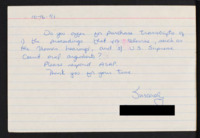 10-16-91
Do you offer for purchase transcripts of
the proceedings that you televise, such as
the Thomas hearings, and of U.S. Supreme
Court oral arguments?
Please respond ASAP.
Thank you for your time.
Sincerely,